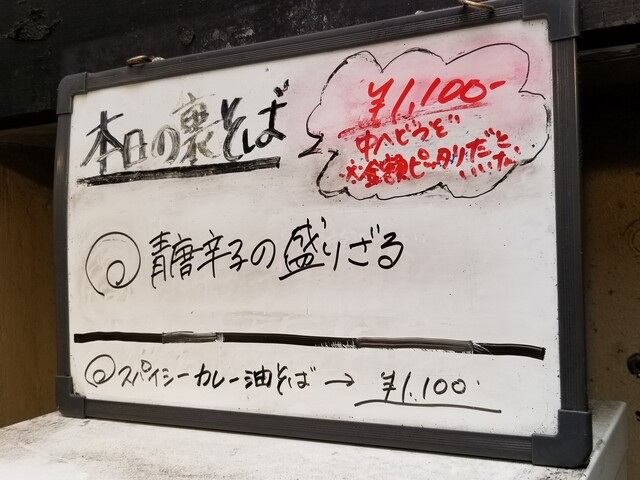 本日の裏そば
¥1,100-
中へどうぞ
※金額ピッタリだと
いいな
青唐辛子の盛りざる
スパイシーカレー油そば → ¥1,100-